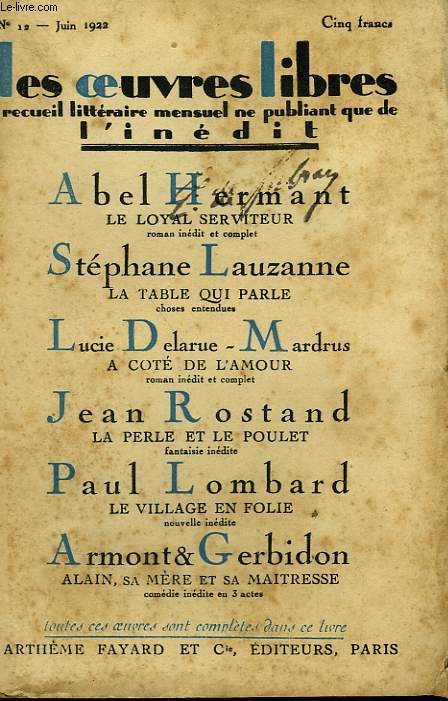 Le-livre.com
No 12 — Juin 1922 Cinq francs
les œuvres libres
recueil littéraire mensuel ne publiant que de
l'inédit
Abel Hermant
LE LOYAL SERVITEUR
roman inédit et complet
Stéphane Lauzanne
LA TABLE QUI PARLE
choses entendues
Lucie Delarue - Mardrus
A COTÉ DE L'AMOUR
roman inédit et complet
Jean Rostand
LA PERLE ET LE POULET
fantaisie inédite
Paul Lombard
LE VILLAGE EN FOLIE
nouvelle inédite
Armont & Gerbidon
ALAIN, SA MÈRE ET SA MAITRESSE
comédie inédite en 3 actes
toutes ces œuvres sont complètes dans ce livre
ARTHÈME FAYARD ET Cie, ÉDITEURS, PARIS